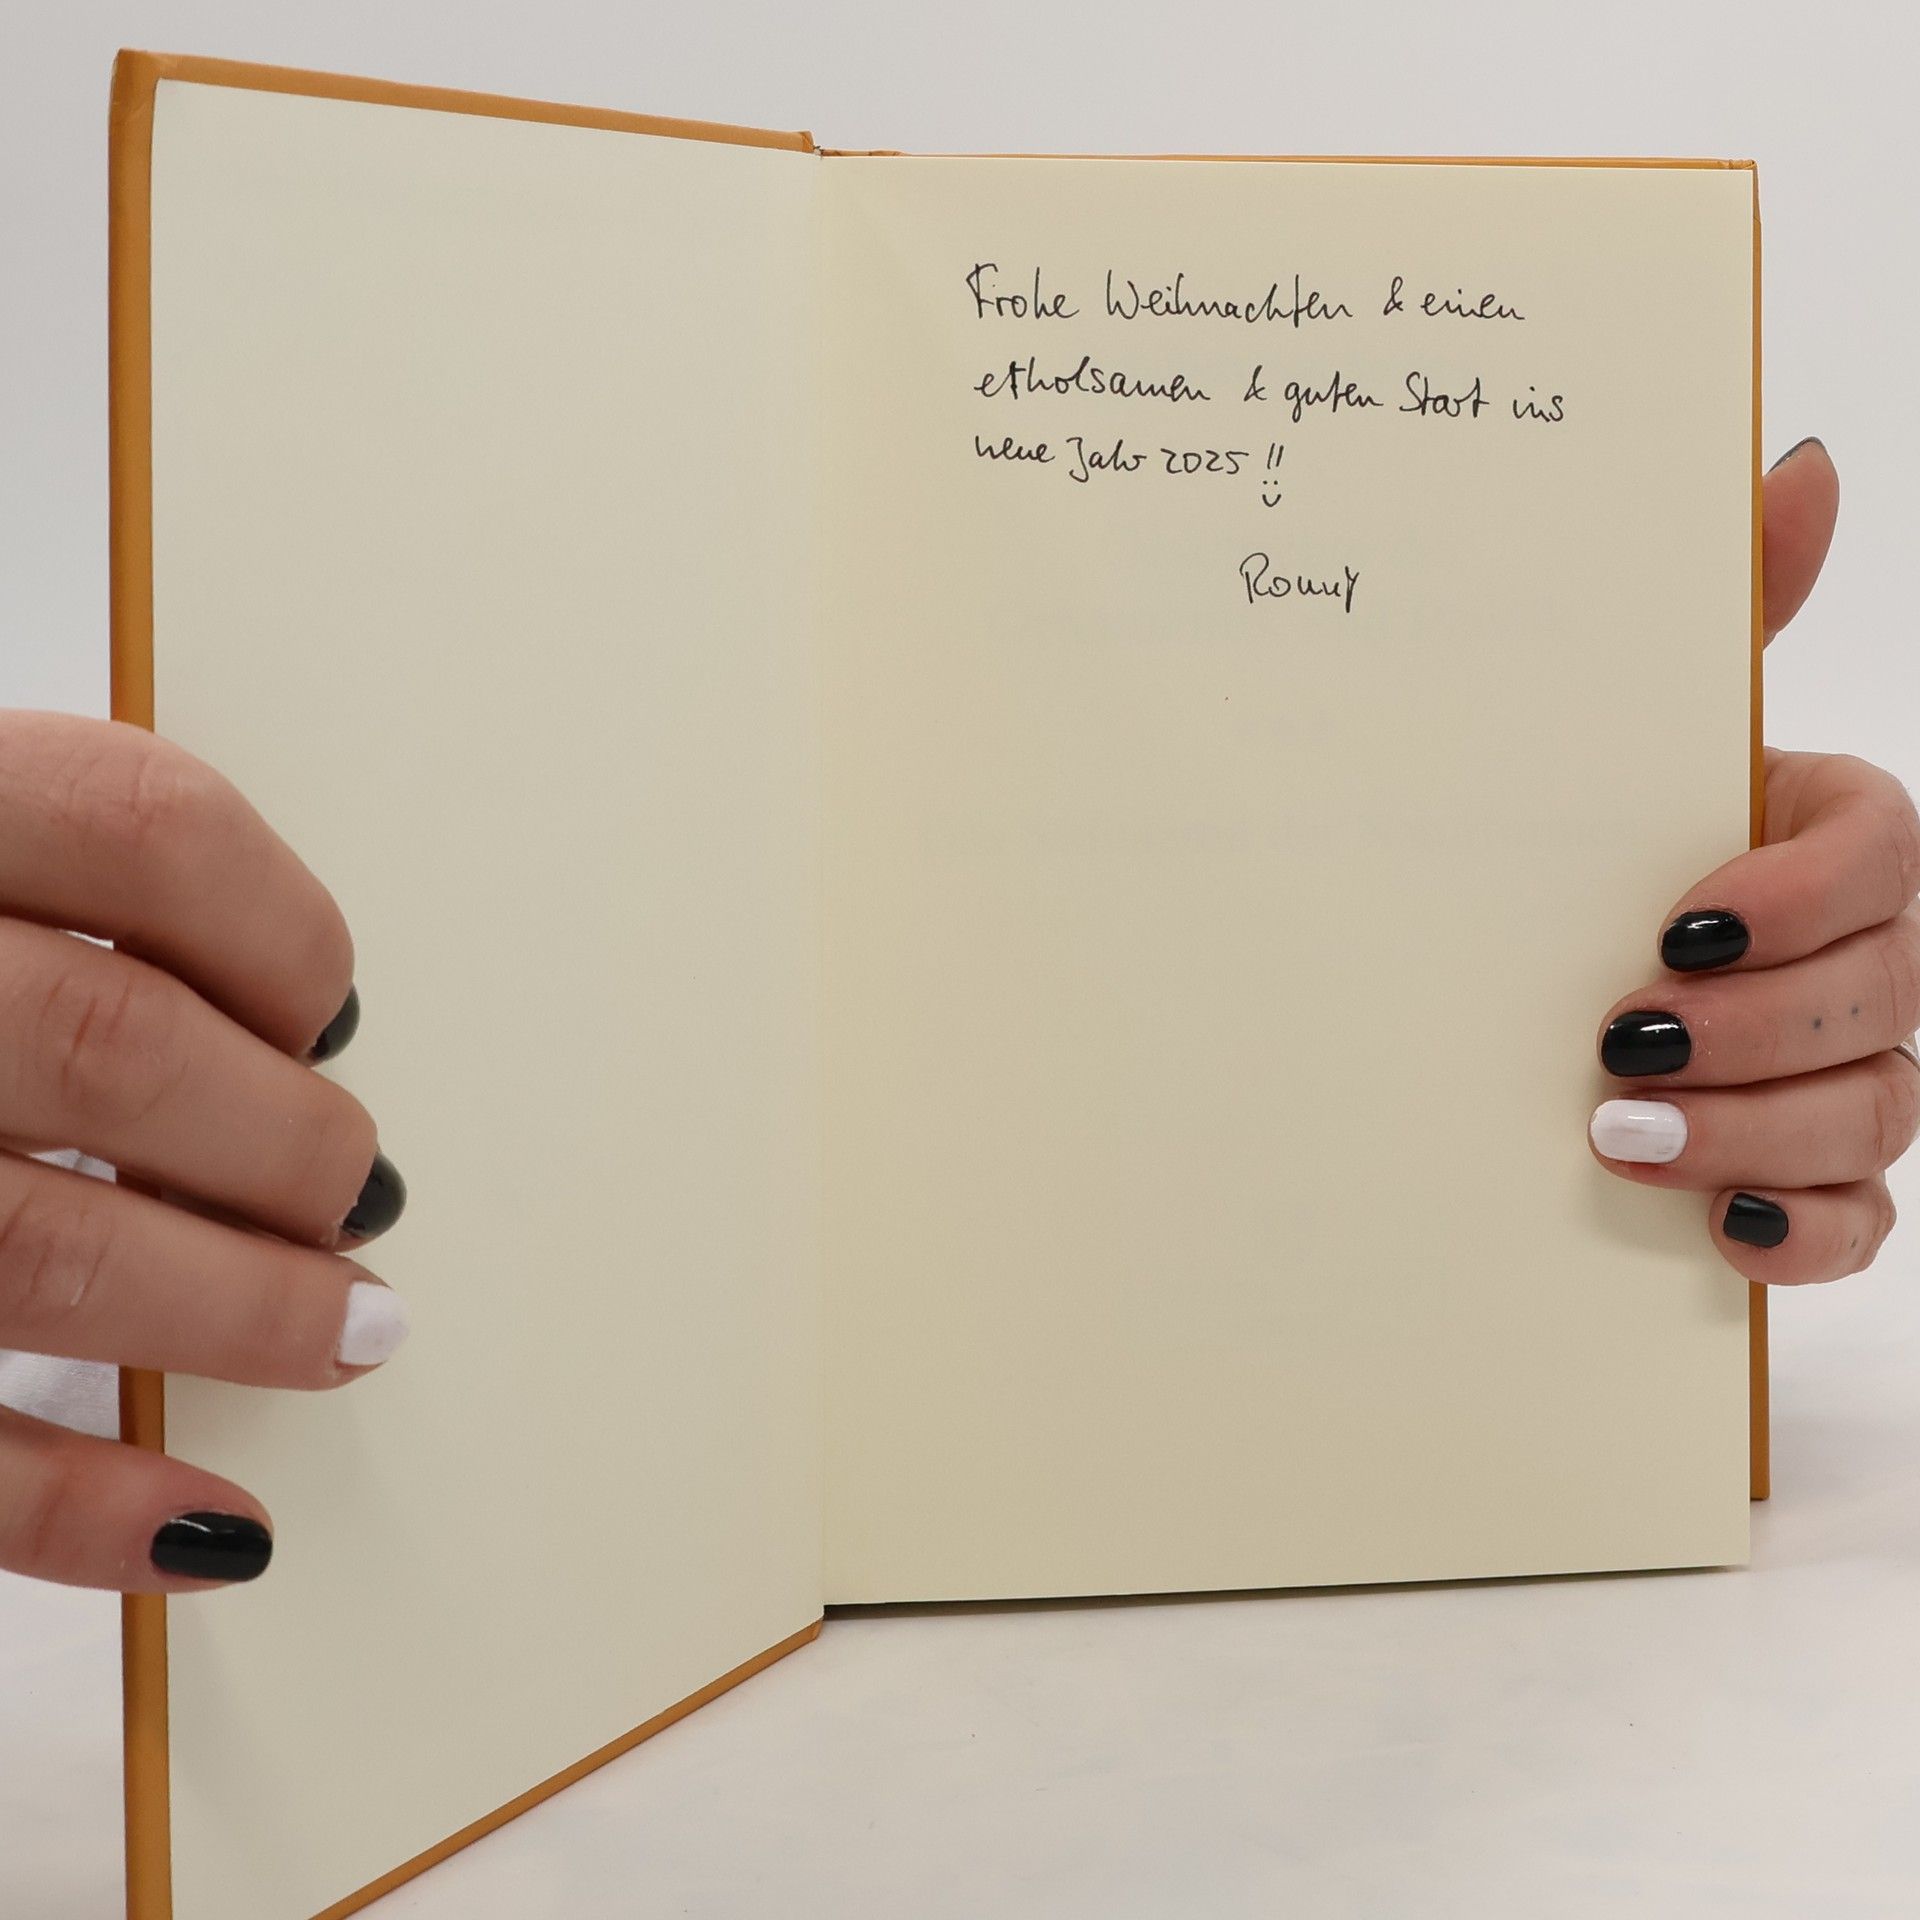 Frohe Weihnachten & einen
erholsamen & guten Start ins
neue Jahr 2025!!
Ronny